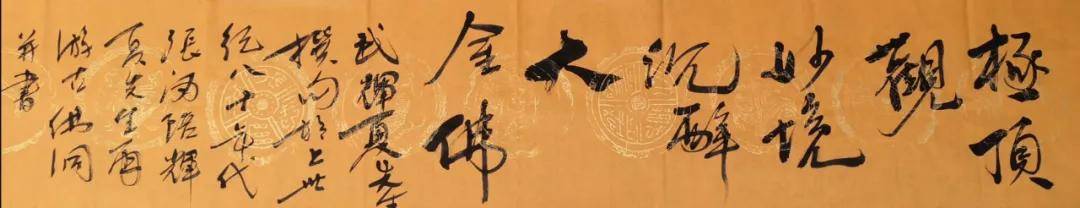 極頂
觀
妙境
沉醉
大
金佛
武輝夏先生
撰句於上世
紀八十年代
張陪輝
夏先生再
游古佛洞
并書